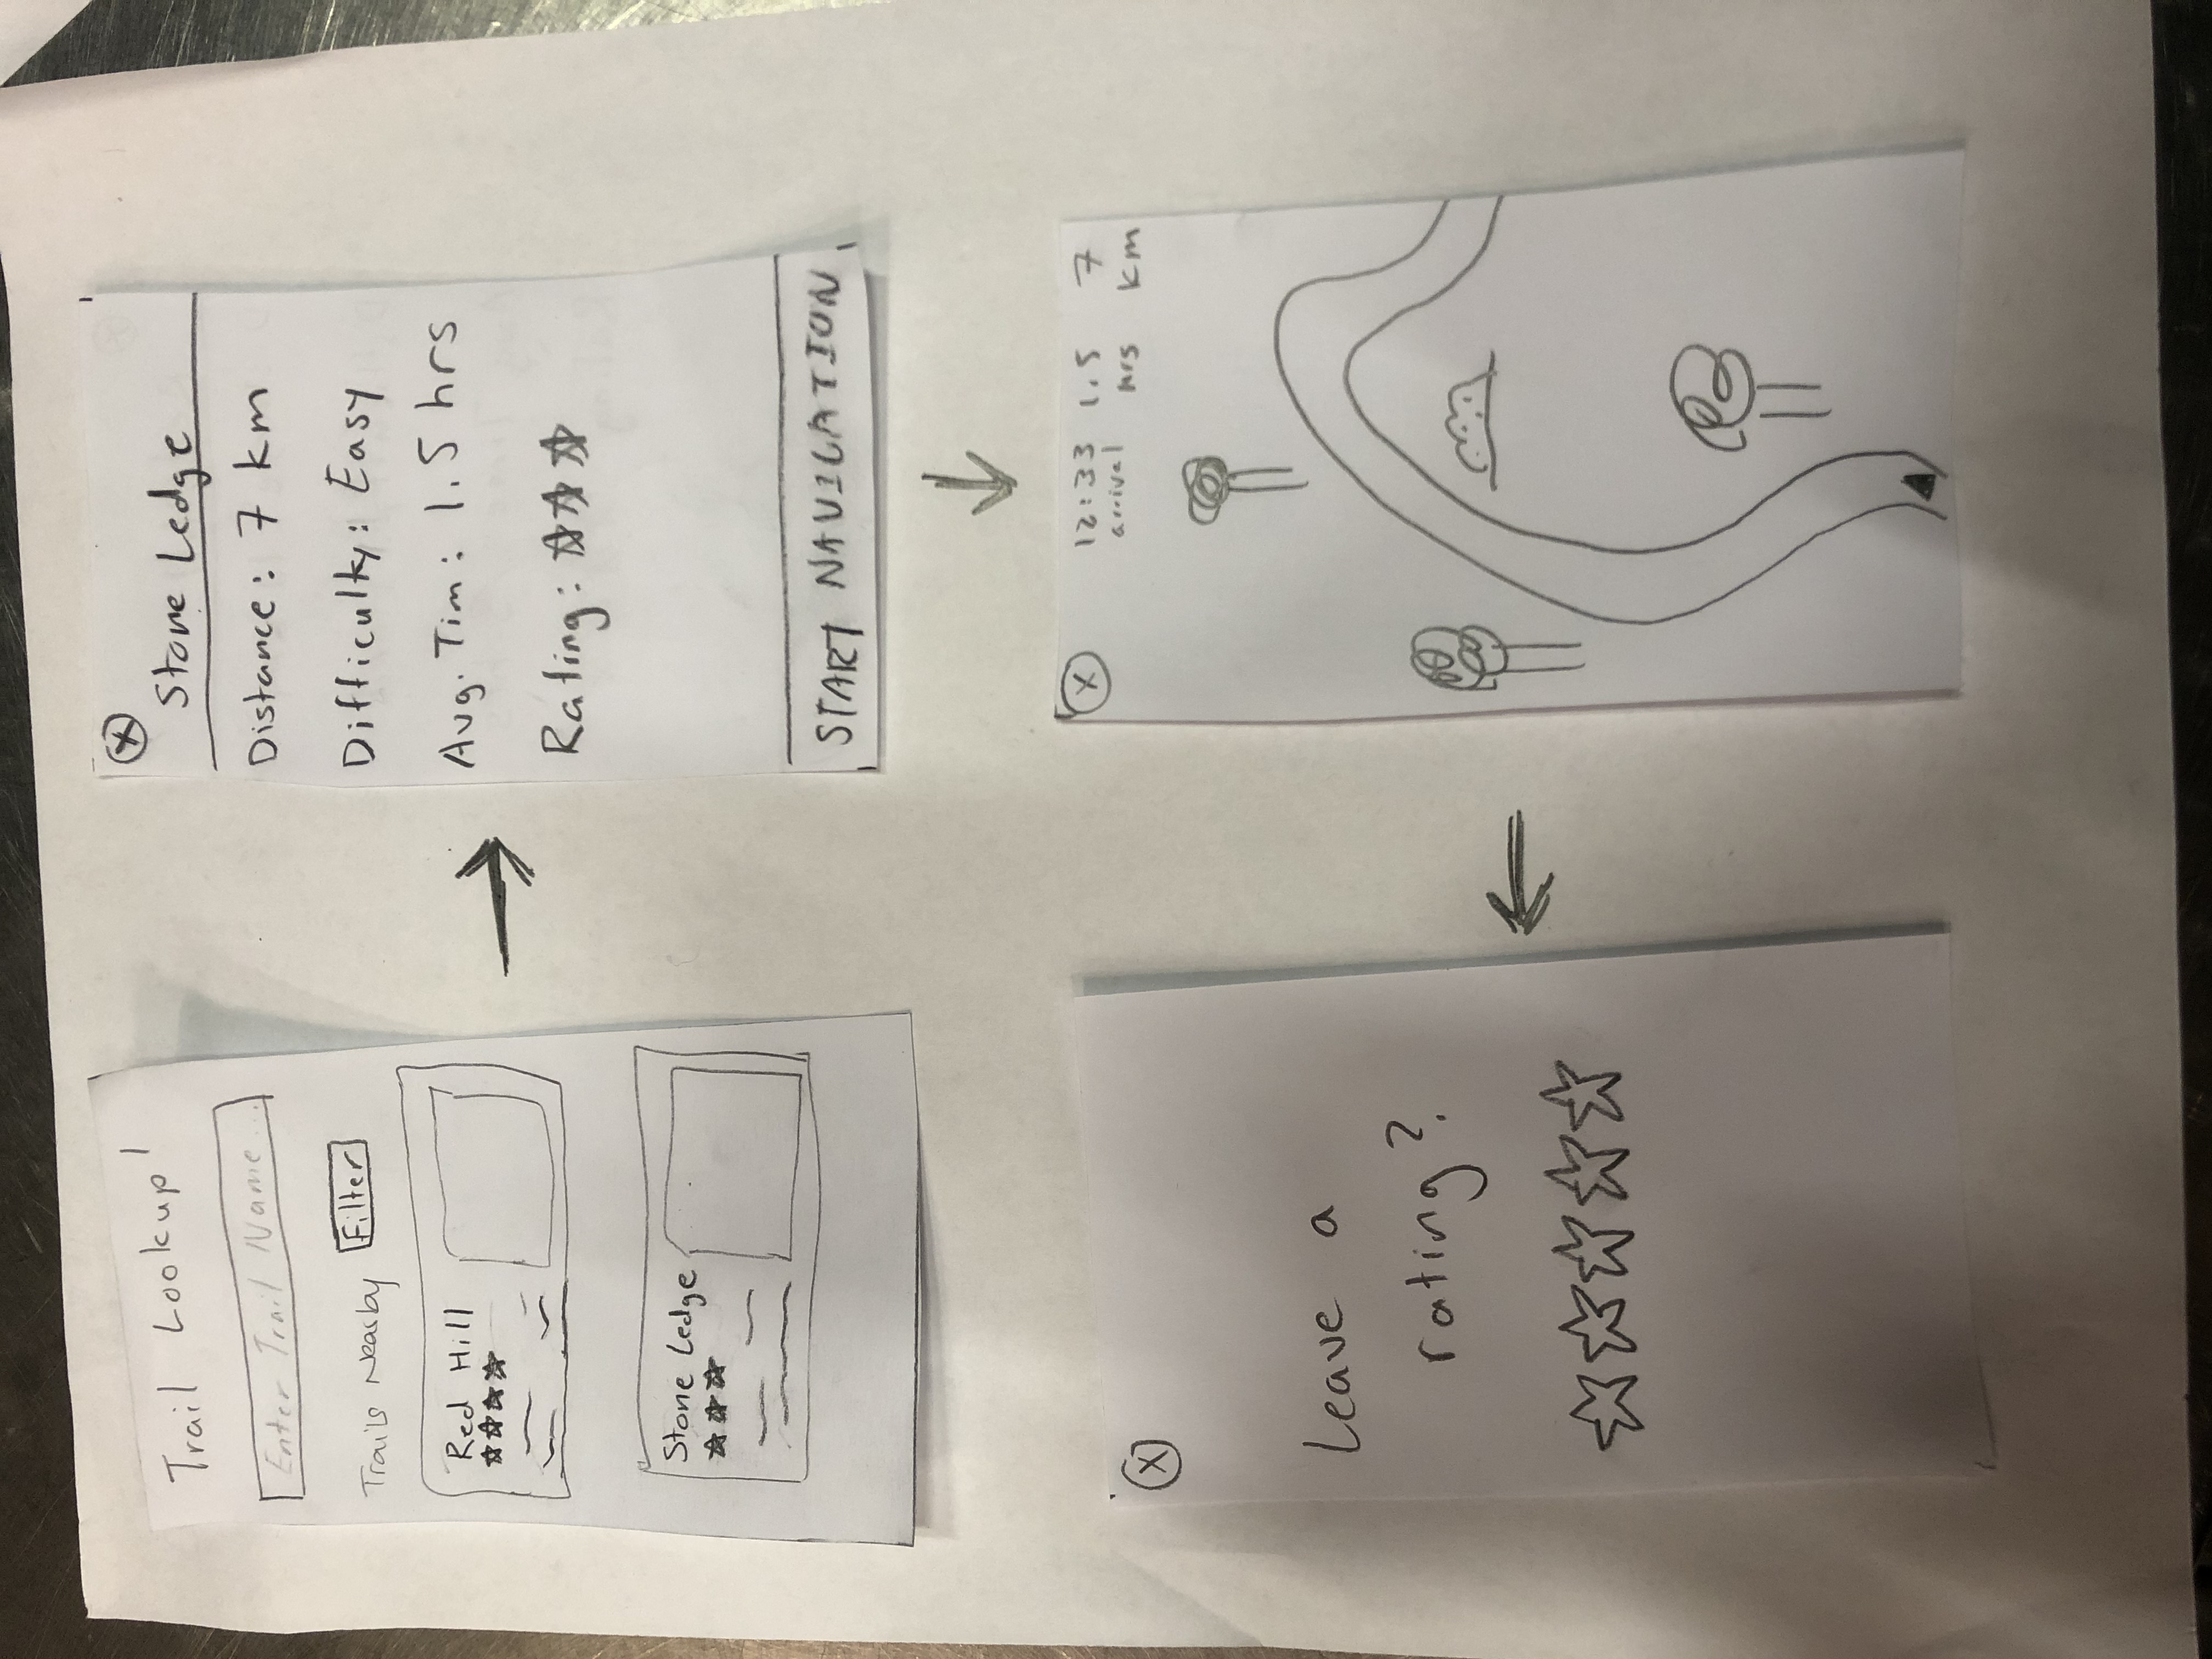 Trail Lookup!
Enter Trail Name...
Trails Nearby Filter
Red Hill
Stone Ledge
X
Stone Ledge
Distance: 7 km
Difficulty: Easy
Avg. Tim: 1.5 hrs
Rating:
START NAVIGATION
X 12:33 1.5 7
arrival hrs km
X
Leave a
rating?